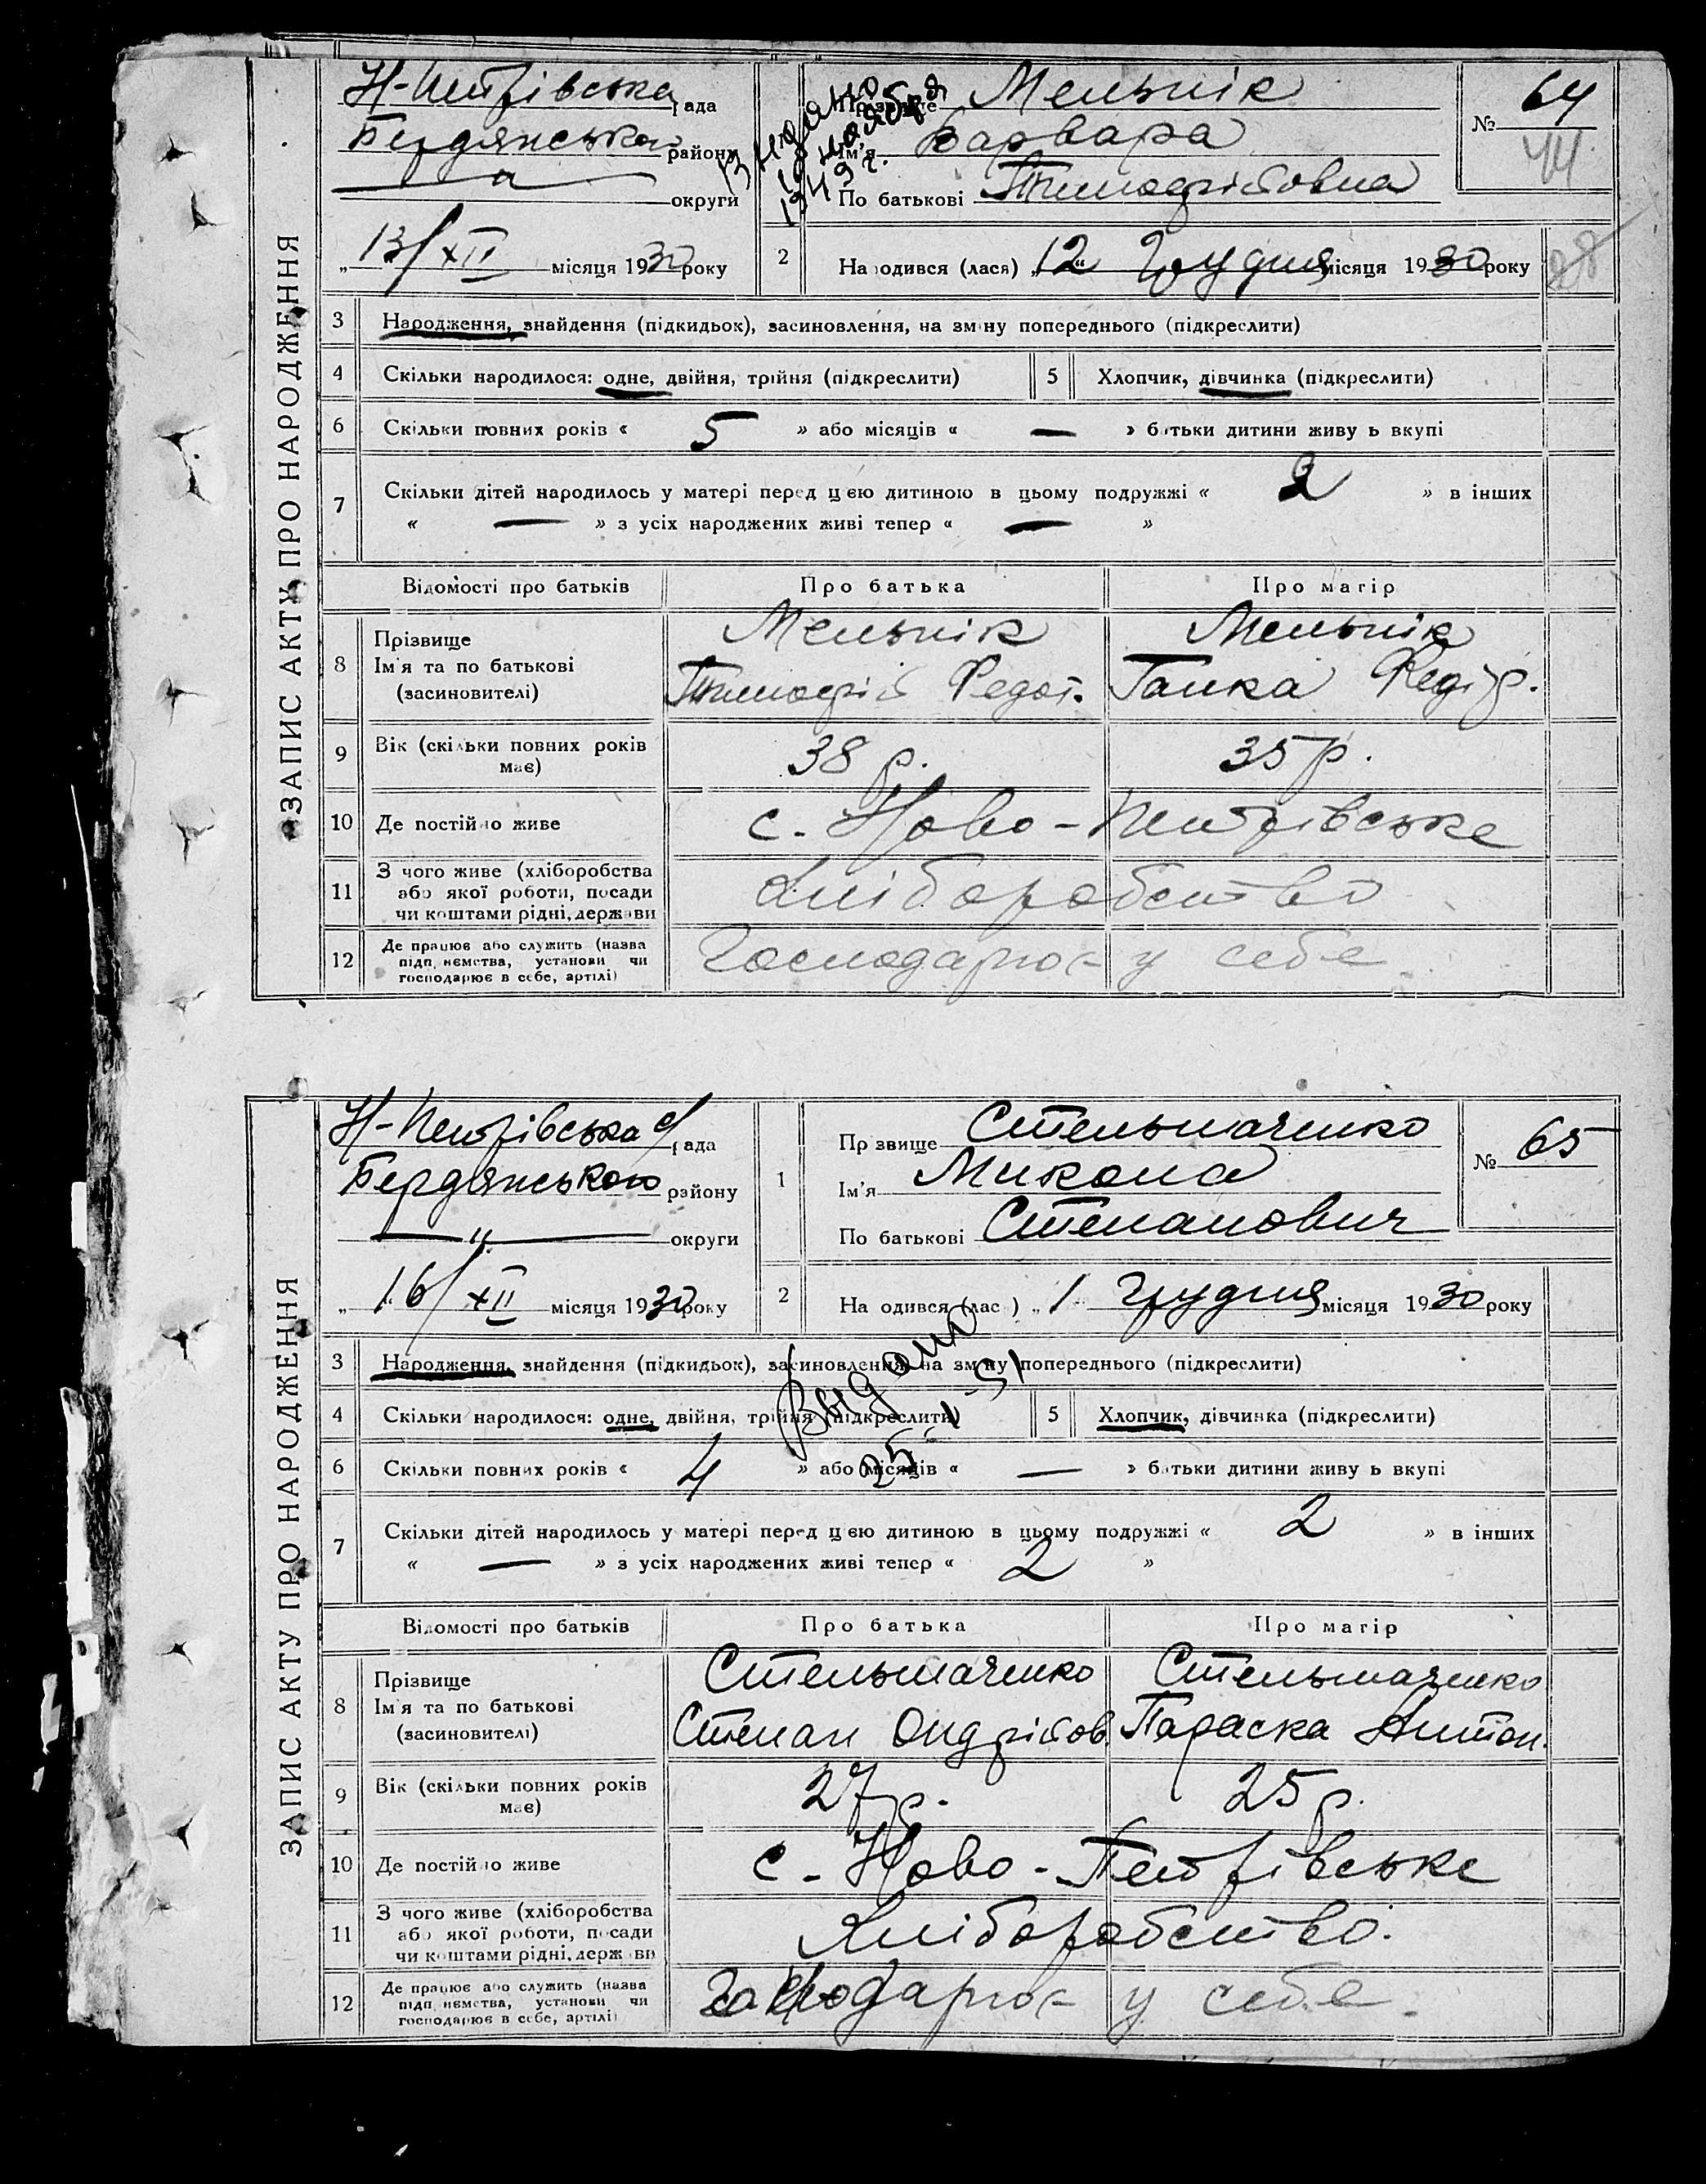 ЗАПИС АКТУ ПРО НАРОДЖЕННЯ
Н-Петрівська рада
Бердянського району
округи
„13/XII місяця 1930 року
Видано
18 ноября
1949 г.
Прізвище Мельнік
Ім'я Варвара
По батькові Тимофрієвна
№ 64
44
28
2 Народився (лася) „12“ Грудня місяця 1930 року
3 Народження, знайдення (підкидьок), засиновлення, на зміну попереднього (підкреслити)
4 Скільки народилося: одне, двійня, трійня (підкреслити) 5 Хлопчик, дівчинка (підкреслити)
6 Скільки повних років « 5 » або місяців « — » батьки дитини живуть вкупі
7 Скільки дітей народилось у матері перед цією дитиною в цьому подружжі « 2 » в інших
« — » з усіх народжених живі тепер « — »
Відомості про батьків Про батька Про матір
8 Прізвище Мельнік Мельнік
Ім'я та по батькові Тимофрій Федот. Ганка Федір.
(засиновителі)
9 Вік (скільки повних років має) 38 р. 35 р.
10 Де постійно живе с. Ново-Петрівське
11 З чого живе (хліборобства
або якої роботи, посади Хліборобство
чи коштами рідні, держави
12 Де працює або служить (назва
підприємства, установи чи Господарює у себе
господарює в себе, артілі)
ЗАПИС АКТУ ПРО НАРОДЖЕННЯ
Н-Петрівська с/рада
Бердянського району
—〃— округи
„16/XII місяця 1930 року
1 Прізвище Стельмаченко
Ім'я Микола
По батькові Степанович
№ 65
2 Народився (лася) „1“ Грудня місяця 1930 року
3 Народження, знайдення (підкидьок), засиновлення, на зміну попереднього (підкреслити)
Выдано
25-1-51
4 Скільки народилося: одне, двійня, трійня (підкреслити) 5 Хлопчик, дівчинка (підкреслити)
6 Скільки повних років « 4 » або місяців « — » батьки дитини живуть вкупі
7 Скільки дітей народилось у матері перед цією дитиною в цьому подружжі « 2 » в інших
« — » з усіх народжених живі тепер « 2 »
Відомості про батьків Про батька Про матір
8 Прізвище Стельмаченко Стельмаченко
Ім'я та по батькові Степан Ондрійов. Параска Антон.
(засиновителі)
9 Вік (скільки повних років має) 27 р. 25 р.
10 Де постійно живе с. Ново-Петрівське
11 З чого живе (хліборобства
або якої роботи, посади Хліборобство.
чи коштами рідні, держави
12 Де працює або служить (назва
підприємства, установи чи Господарює у себе.
господарює в себе, артілі)